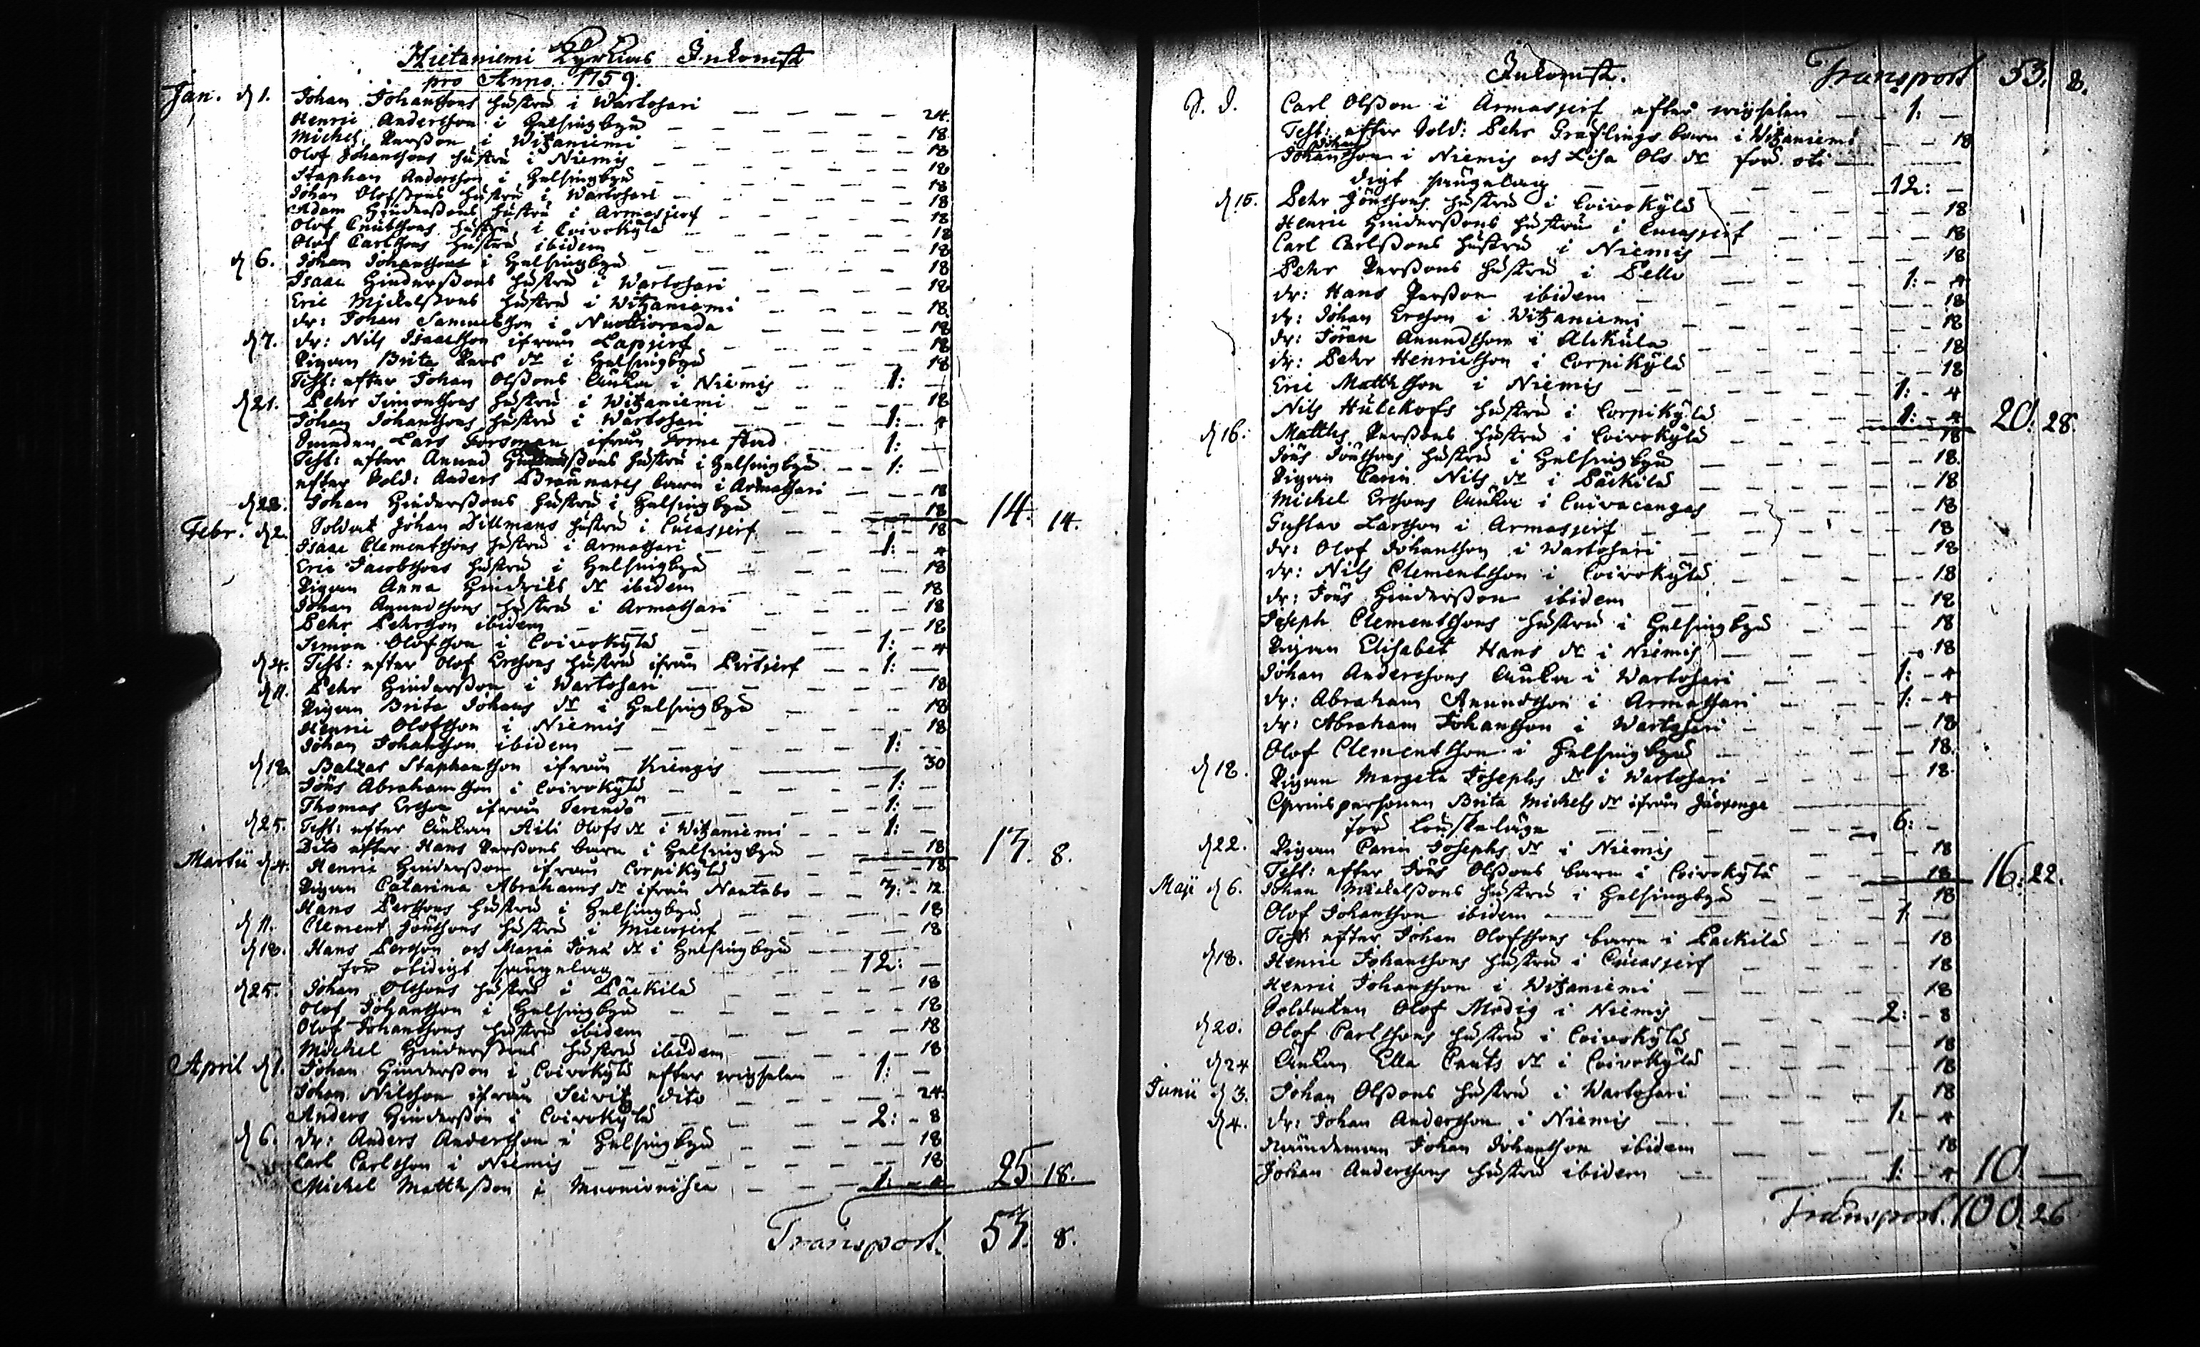 Hietaniemi Kyrkios Inkomst
pro Anno 1759.
Jan. d 1. Johan Johanssons hustru i Wartosari - - - 24
Henric Andersson i Helsingbyn - - - 18
Michel Persson i Witzaniemi - - - 18
Olof Johanssons hustru i Niemis - - - 18
Staphan Andersson i Helsingbyn - - - 18
Johan Olofssons hustru i Wartosari - - - 18
Adam Hinderssons hustru i Armasjerf - - - 18
Olof Cnutssons hustru i Coivokylä - - - 18
Olof Carlssons hustru ibidem - - - 18
d 6. Johan Johansson i Helsingbyn - - - 18
Isaac Hinderssons hustru i Wartosari - - - 18
Eric Mickelssons hustru i Witzaniemi - - - 18
dr: Johan Samuelsson i Nuottioranda - - - 18
d 7. dr: Nils Isaacsson ifrån Lapjerf - - - 18
Pigan Brita Pers dr i Helsingbyn - - - 18
Test: efter Johan Olssons änka i Niemis - - 1: -
d 21. Pehr Simonssons hustru i Witzaniemi - - - 18
Johan Johanssons hustru i Wartosari - - 1: - 4
Lars Forsman ifrån Torne stad - - 1: -
Test: efter Anund hustru i Helsingbyn - - 1: -
efter Sold: Anders Braunares barn i Armassari - - 18
d 28. Johan Hinderssons hustru i Helsingbyn - - 18 14. 14.
Febr. d 2. Soldat Johan Dillmans hustru i Cucasjerf - - 18
Isaac Clementssons hustru i Armassari - - 1: - 4
Eric Jacobssons hustru i Helsingbyn - - - 18
Pigan Anna Hindriks dr ibidem - - - 18
Johan Anundssons hustru i Armassari - - - 18
Pehr Pehrsson ibidem - - - 18
Simon Olofsson i Coivokylä - - 1: - 4
d 4. Test: efter Olof Erssons hustru ifrån - - 1: -
d 11. Pehr Hindersson i Wartosari - - - 18
Pigan Brita Johans dr i Helsingbyn - - - 18
Henric Olofsson i Niemis - - - 18
Johan Johansson ibidem - - 1: -
d 18. Balzar Staphansson ifrån Kiengis - - 30
Jöns Abrahamsson i Coivokylä - - 1: -
Thomas Ersson ifrån Terendö - - 1: -
d 25. Test: efter änkan Aili Olofs dr i Witzaniemi - - 1: -
Dito efter Hans Perssons barn i Helsingbyn - - 18 17. 8.
Martii d 4. Henric Hindersson ifrån Corpikylä - - 18
Pigan Catarina Abrahams dr ifrån - - 7: - 12
Hans Perssons hustru i Helsingbyn - - - 18
d 11. Clement Jönssons hustru i Miecojerf - - - 18
d 18. Hans Persson och Maria Jöns dr i Helsingbyn
för otidigt sängelag - - 12: -
d 25. Johan Olssons hustru i Päckilä - - - 18
Olof Johansson i Helsingbyn - - - 18
Olof Johanssons hustru ibidem - - - 18
Michel Hinderssons hustru ibidem - - - 18
April d 1. Johan Hindersson i Coivokylä efter wigselen - 1: -
Johan Nilsson ifrån dito - - 24
Anders Hindersson i Coivokylä - - 2: - 8
d 6. dr: Anders Andersson i Helsingbyn - - - 18
Carl Carlsson i Niemis - - - 18
Michel Matthsson i Muonionisca - - 1: - 4 25 18.
Transport. 57. 8.
Inkomst. Transport 53. 8.
Carl Olsson i Armasjerf efter wigselen - - 1: -
Test: efter Sold: Pehr barn i Witzaniemi - - 18
Johan Johansson i Niemis och Lisa Ols dr för oti-
digt sängelag - - 12: -
d 15. Pehr Jönssons hustru i Coivokylä - - - 18
Henric Hinderssons hustru i Cucasjerf - - - 18
Carl Carlssons hustru i Niemis - - - 18
Pehr Perssons hustru i Pello - - 1: - 4
dr: Hans Persson ibidem - - - 18
dr: Johan Ersson i Witzaniemi - - - 18
dr: Jöran Anundsson i Alckula - - - 18
dr: Pehr Henricsson i Corpikylä - - - 18
Eric Matthsson i Niemis - - 1: - 4
Nils hustru i Corpikylä - - 1: - 4 20: 28.
d 16. Matths Perssons hustru i Coivokylä - - - 18
Jöns Jönssons hustru i Helsingbyn - - - 18.
Pigan Carin Nils dr i Päckilä - - - 18
Michel Erssons änka i Cuivacangas - - - 18
Gustav Larsson i Armasjerf - - - 18
dr: Olof Johansson i Wartosari - - - 18
dr: Nils Clementsson i Coivokylä - - - 18
dr: Jöns Hindersson ibidem - - - 18
Joseph Clementssons hustru i Helsingbyn - - - 18
Pigan Elisabet Hans dr i Niemis - - - 18
Johan Anderssons änka i Wartosari - - 1: - 4
dr: Abraham Anundsson i Armassari - - 1: - 4
dr: Abraham Johansson i Wartosari - - - 18
Olof Clementsson i Helsingbyn - - - 18.
d 18. Pigan Margeta Josephs dr i Wartosari - - - 18.
Brita Michels dr ifrån
för - - 6: -
d 22. Pigan Carin Josephs dr i Niemis - - - 18
Test: efter Jöns Olssons barn i Coivokylä - - 18 16: 22.
Maji d 6. Johan Mickelssons hustru i Helsingbyn - - - 18
Olof Johansson ibidem - - 1: -
Test: efter Johan Olofssons barn i Päckilä - - - 18
d 18. Henric Johanssons hustru i Cucasjerf - - - 18
Henric Johansson i Witzaniemi - - - 18
Soldaten Olof Modig i Niemis - - 2: - 8
d 20. Olof Carlssons hustru i Coivokylä - - - 18
d 24 Änkan Ella Cnuts dr i Coivokylä - - - 18
Junii d 3. Johan Olssons hustru i Wartosari - - - 18
d 4. dr: Johan Andersson i Niemis - - 1: - 4
Johan Johansson ibidem - - - 18
Johan Anderssons hustru ibidem - - 1: - 4 10. -
Transport. 100. 26